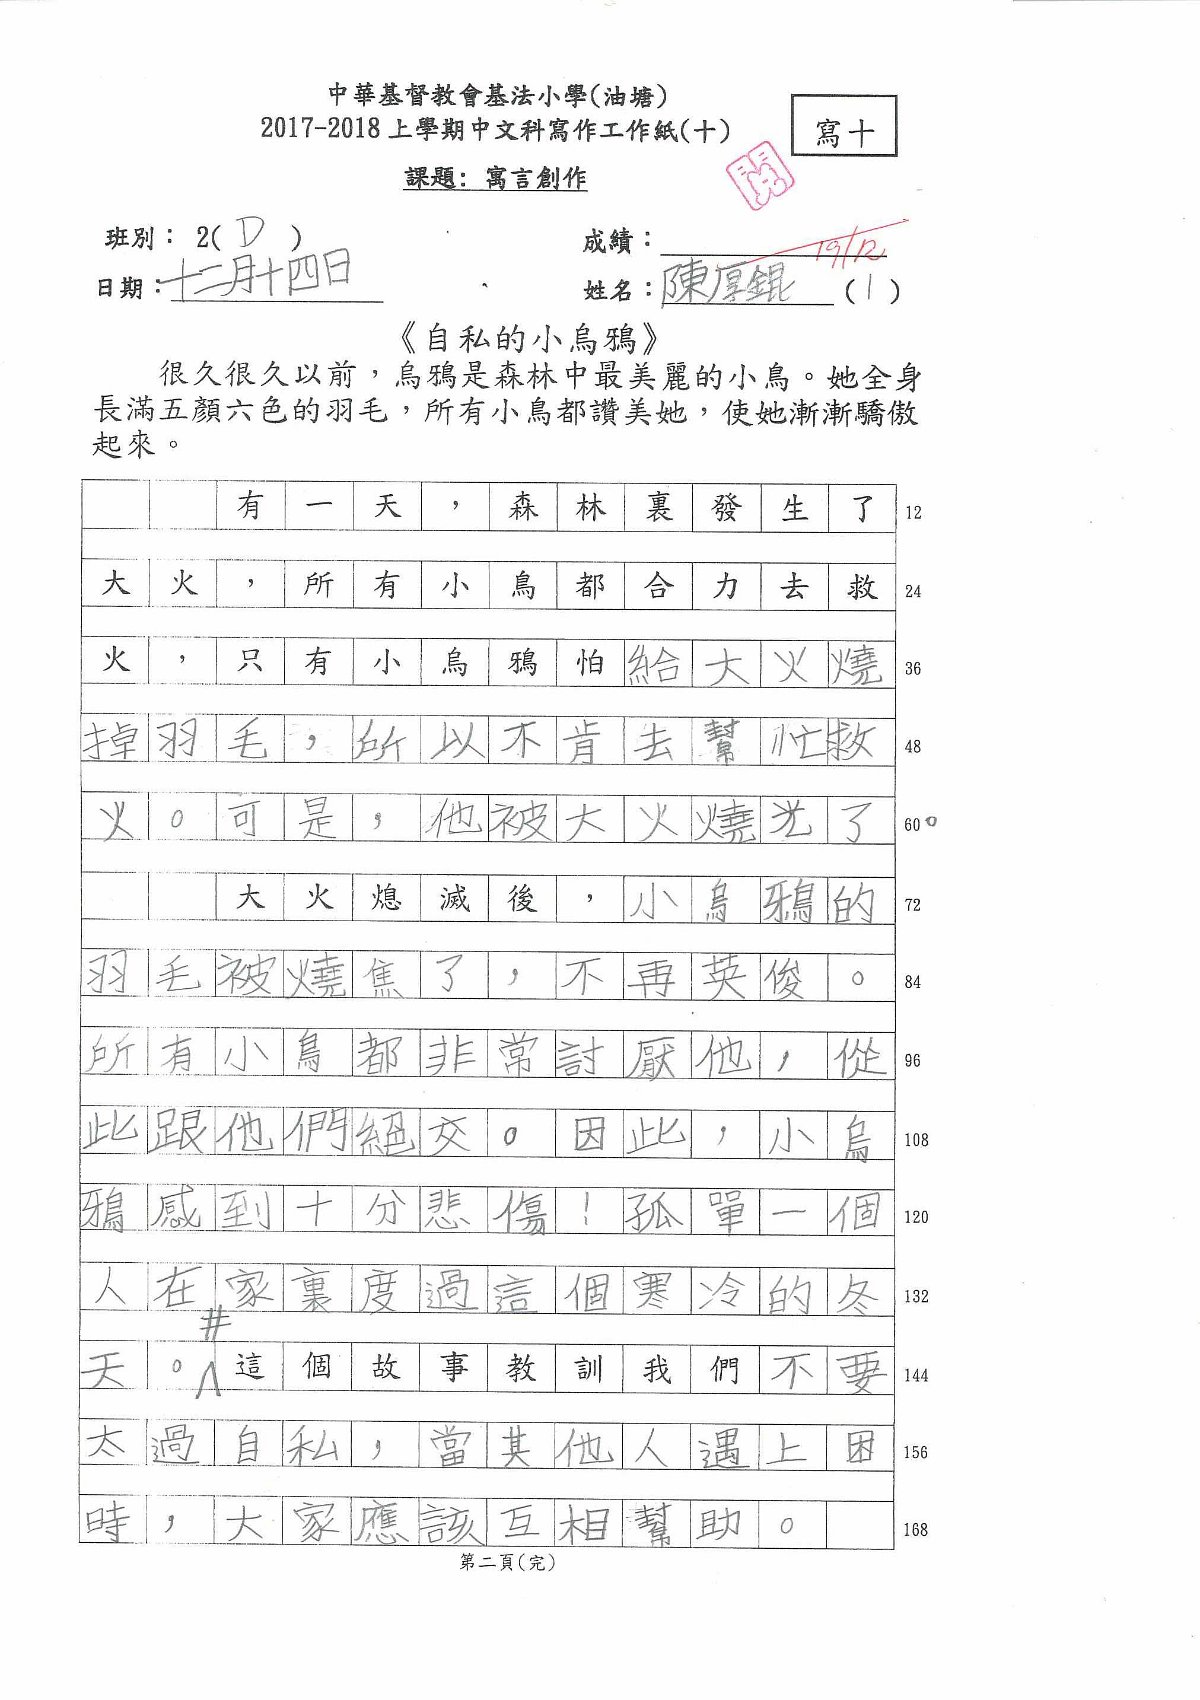 中華基督教會基法小學(油塘)
2017-2018上學期中文科寫作工作紙(十)
寫十
閱
課題: 寓言創作
班別： 2( D )
成績：
19/12
日期：十二月十四日
姓名：陳厚錕 (1)
《自私的小烏鴉》
很久很久以前，烏鴉是森林中最美麗的小鳥。她全身
長滿五顏六色的羽毛，所有小鳥都讚美她，使她漸漸驕傲
起來。
有一天，森林裏發生了 12
大火，所有小鳥都合力去救 24
火，只有小烏鴉怕給大火燒 36
掉羽毛，所以不肯去幫忙救 48
火。可是，他被大火燒光了 60。
大火熄滅後，小烏鴉的 72
羽毛被燒焦了，不再英俊。 84
所有小鳥都非常討厭他，從 96
此跟他們絕交。因此，小烏 108
鴉感到十分悲傷！孤單一個 120
人在家裏度過這個寒冷的冬 132
#
天。這個故事教訓我們不要 144
太過自私，當其他人遇上困 156
時，大家應該互相幫助。 168
第二頁(完)